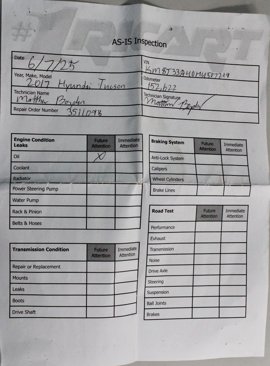 AS-IS Inspection
Date 6/7/25
VIN
Year, Make, Model
2017 Hyundai Tucson
Odometer
152,622
Technician Name
Matthew
Technician Signature
Repair Order Number
Engine Condition
Leaks
Future Attention
Immediate Attention
Oil X
Coolant
Radiator
Power Steering Pump
Water Pump
Rack & Pinion
Belts & Hoses
Braking System
Future Attention
Immediate Attention
Anti-Lock System
Calipers
Wheel Cylinders
Brake Lines
Transmission Condition
Future Attention
Immediate Attention
Repair or Replacement
Mounts
Leaks
Boots
Drive Shaft
Road Test
Future Attention
Immediate Attention
Performance
Exhaust
Transmission
Noise
Drive Axle
Steering
Suspension
Ball Joints
Brakes